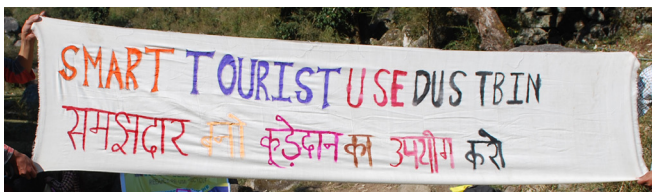 SMART TOURIST USE DUSTBIN
समझदार बनो कूड़ेदान का उपयोग करो